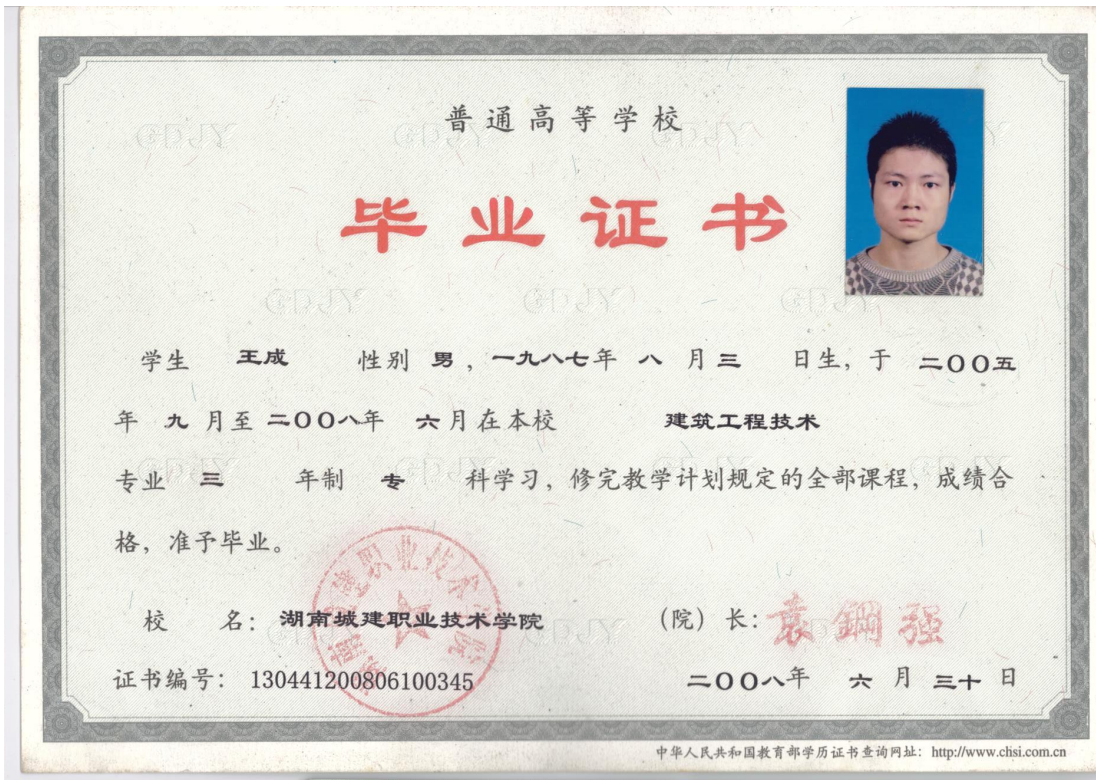 普通高等学校
毕业证书
学生 王成 性别 男，一九八七年 八 月 三 日生，于 二〇〇五
年 九 月至 二〇〇八年 六月在本校 建筑工程技术
专业 三 年制 专 科学习，修完教学计划规定的全部课程，成绩合
格，准予毕业。
校 名：湖南城建职业技术学院 （院）长：袁鋼强
证书编号：130441200806100345 二〇〇八年 六 月 三十 日
湖南城建职业技术学院
中华人民共和国教育部学历证书查询网址：http://www.chsi.com.cn